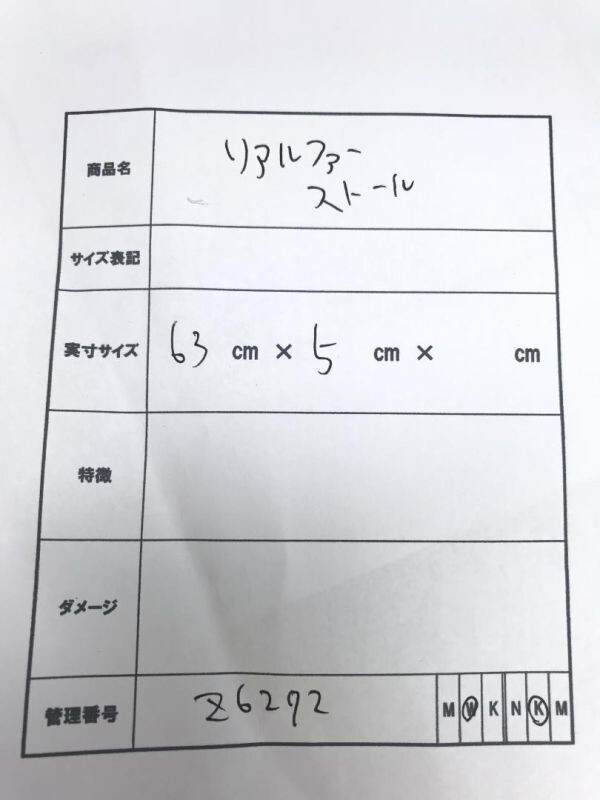 商品名 リアルファー
ストール
サイズ表記
実寸サイズ 63 cm × 5 cm × cm
特徴
ダメージ
管理番号 Z6292 M W K N K M